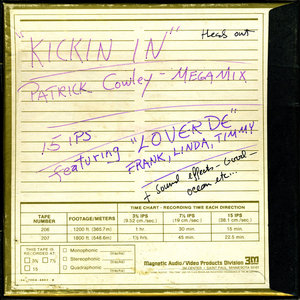 Heads out
"KICKIN IN"
PATRICK COWLEY - MEGAMIX
15 IPS
featuring "LOVERDE"
FRANK, LINDA, TIMMY
+ Sound effects -
ocean etc...
TIME CHART - RECORDING TIME EACH DIRECTION
TAPE NUMBER FOOTAGE/METERS 3¾ IPS 7½ IPS 15 IPS
(9.52 cm/sec.) (19 cm/sec.) (38.1 cm/sec.)
206 1200 ft. (365.7 m) 1 hr. 30 min. 15 min.
207 1800 ft. (548.6 m) 1½ hrs. 45 min. 22.5 min.
THIS TAPE IS RECORDED AT: Monophonic
3¾ 7½ Stereophonic
15 Quadraphonic
Magnetic Audio/Video Products Division 3M
3M CENTER ST PAUL, MINNESOTA